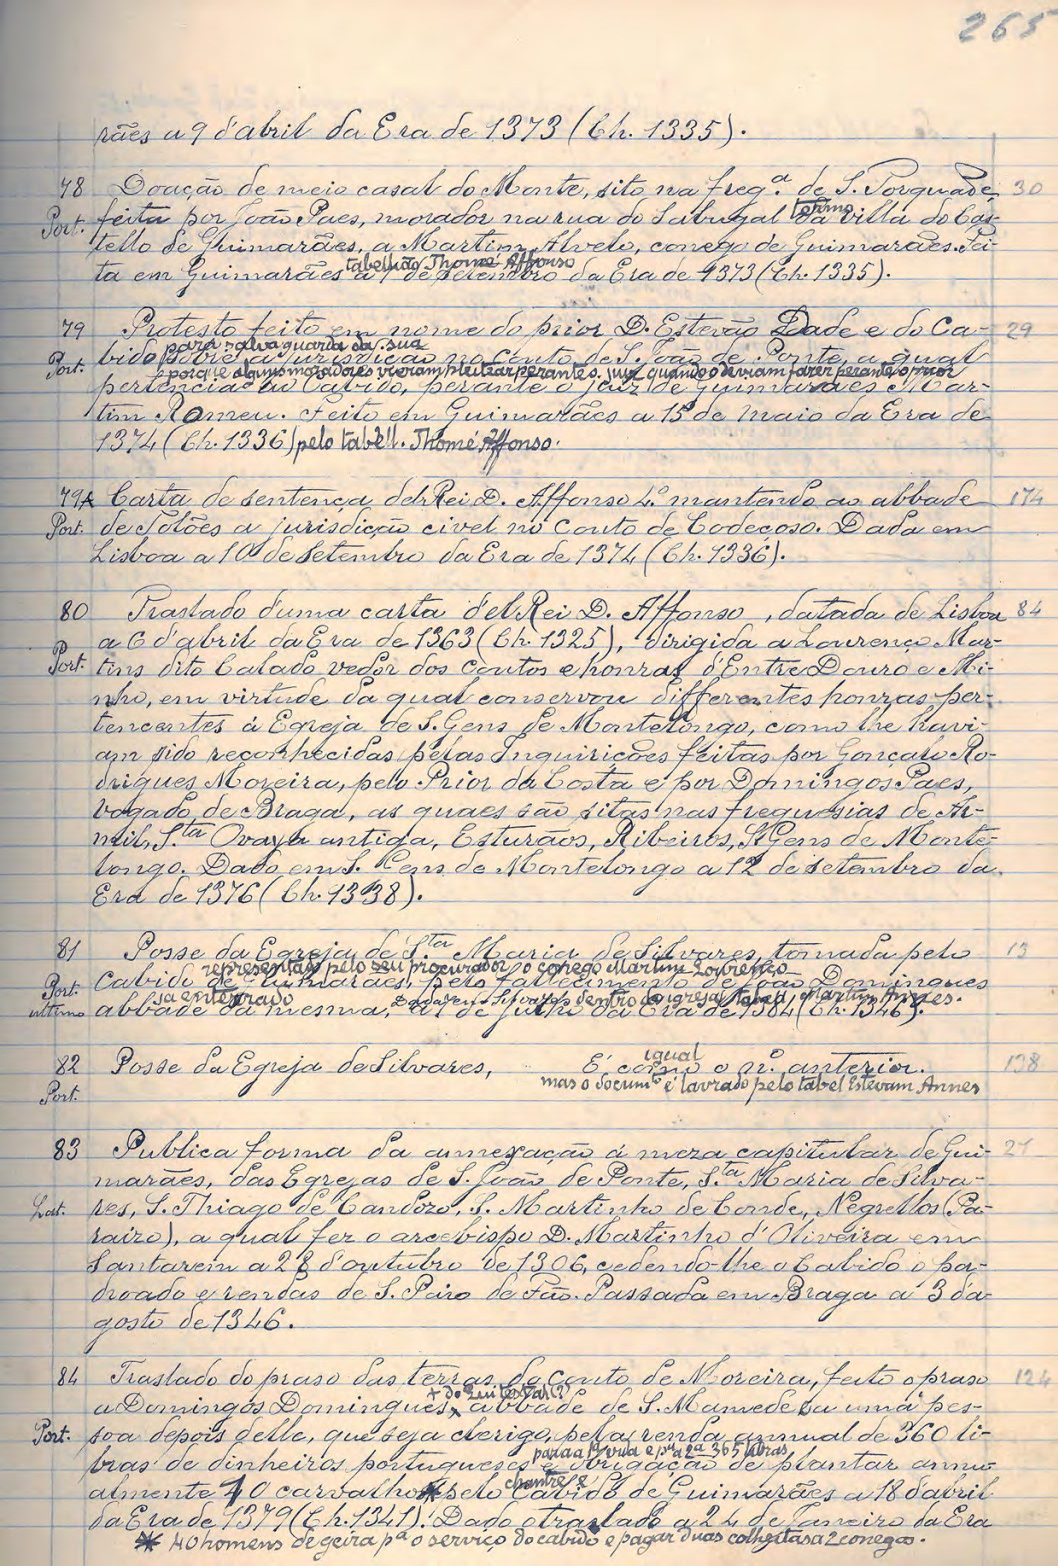 265
rães a 9 d'abril da Era de 1373 (Ch. 1335).
78 Doação de meio casal do Monte, sito na freg.ª de S. Torquade, 30
Port. feita por João Paes, morador na rua do Sabugal termo da villa do Cas-
tello de Guimarães, a Martim Alvelo, conego de Guimarães. Fei-
tabellião Thomé Affonso
ta em Guimarães a 7 de setembro da Era de 1373 (Ch. 1335).
79 Protesto feito em nome do prior D. Estevão Dade e do Ca- 29
para salvaguarda da sua
Port. bido sobre a jurisdição no couto de S. João de Ponte, a qual
e porque alguns moradores vieram pleitear perante s. juiz quando o deviam fazer perante o prior
pertencia ao Cabido, perante o juiz de Guimarães Mar-
tim Romeu. Feito em Guimarães a 15 de maio da Era de
1374 (Ch. 1336) pelo tabell. Thomé Affonso.
79A Carta de sentença del Rei D. Affonso 4.º mantendo ao abbade 174
Port. de Tolões a jurisdicção civel no Couto de Codeçoso. Dada em
Lisboa a 10 de Setembro da Era de 1374 (Ch. 1336).
80 Traslado d'uma carta d'el Rei D. Affonso, datada de Lisboa 84
a 6 d'abril da Era de 1363 (Ch. 1325), dirigida a Lourenço Mar-
Port. tins dito Calado vedor dos coutos e honras d'Entre Douro e Mi-
nho, em virtude da qual conservou differentes honras per-
tencentes á Egreja de S. Gens de Montelongo, como lhe havi-
am sido reconhecidas pelas Inquirições feitas por Gonçalo Ro-
drigues Moreira, pelo Prior da Costa e por Domingos Paes,
vogado de Braga, as quaes são sitas nas freguesias de Ar-
mil, S.ta Ovaya antiga, Esturãos, Ribeiros, S. Gens de Monte-
longo. Dado em S. Gens de Montelongo a 12 de setembro da
Era de 1376 (Ch. 1338).
81 Posse da Egreja de S.ta Maria de Silvares, tomada pelo 13
representado pelo seu procurador o conego Martim Lourenço
Port. Cabido de Guimarães, pelo fallecimento de João Domingues
sa enterrado Dada em Silvares dentro da igreja tabel. Martim Annes.
ultimo abbade da mesma, a 1 de Julho da Era de 1384 (Ch. 1346).
82 Posse da Egreja de Silvares, É como igual o n.º anterior. 138
Port. mas o docum.to é lavrado pelo tabel Estevam Annes
83 Publica forma da annexação á meza capitular de Gui- 21
marães, das Egrejas de S. João de Ponte, S.ta Maria de Silva-
Lat. res, S. Thiago de Candozo, S. Martinho de Conde, Negrellos (Pa-
raizo), a qual fez o arcebispo D. Martinho d'Oliveira em
Santarem a 28 d'outubro de 1306, cedendo-lhe o Cabido o pa-
droado e rendas de S. Paio de Fão. Passada em Braga a 3 d'a-
gosto de 1346.
84 Traslado do praso das terras do Couto de Moreira, feito o praso 124
+ do
a Domingos Domingues, abbade de S. Mamede e a uma pes-
Port. soa depois delle, que seja clerigo, pela renda annual de 360 li-
para a 1ª vida e p.ª a 2ª 365 libras
bras de dinheiros portugueses e obrigação de plantar annu-
chantre e
almente 10 carvalhos * pelo Cabido de Guimarães a 18 d'abril
da Era de 1379 (Ch. 1341). Dado o traslado a 24 de Janeiro da Era
* 40 homens de geira p.ª o serviço do cabido e pagar duas colheitas a 2 conegos.